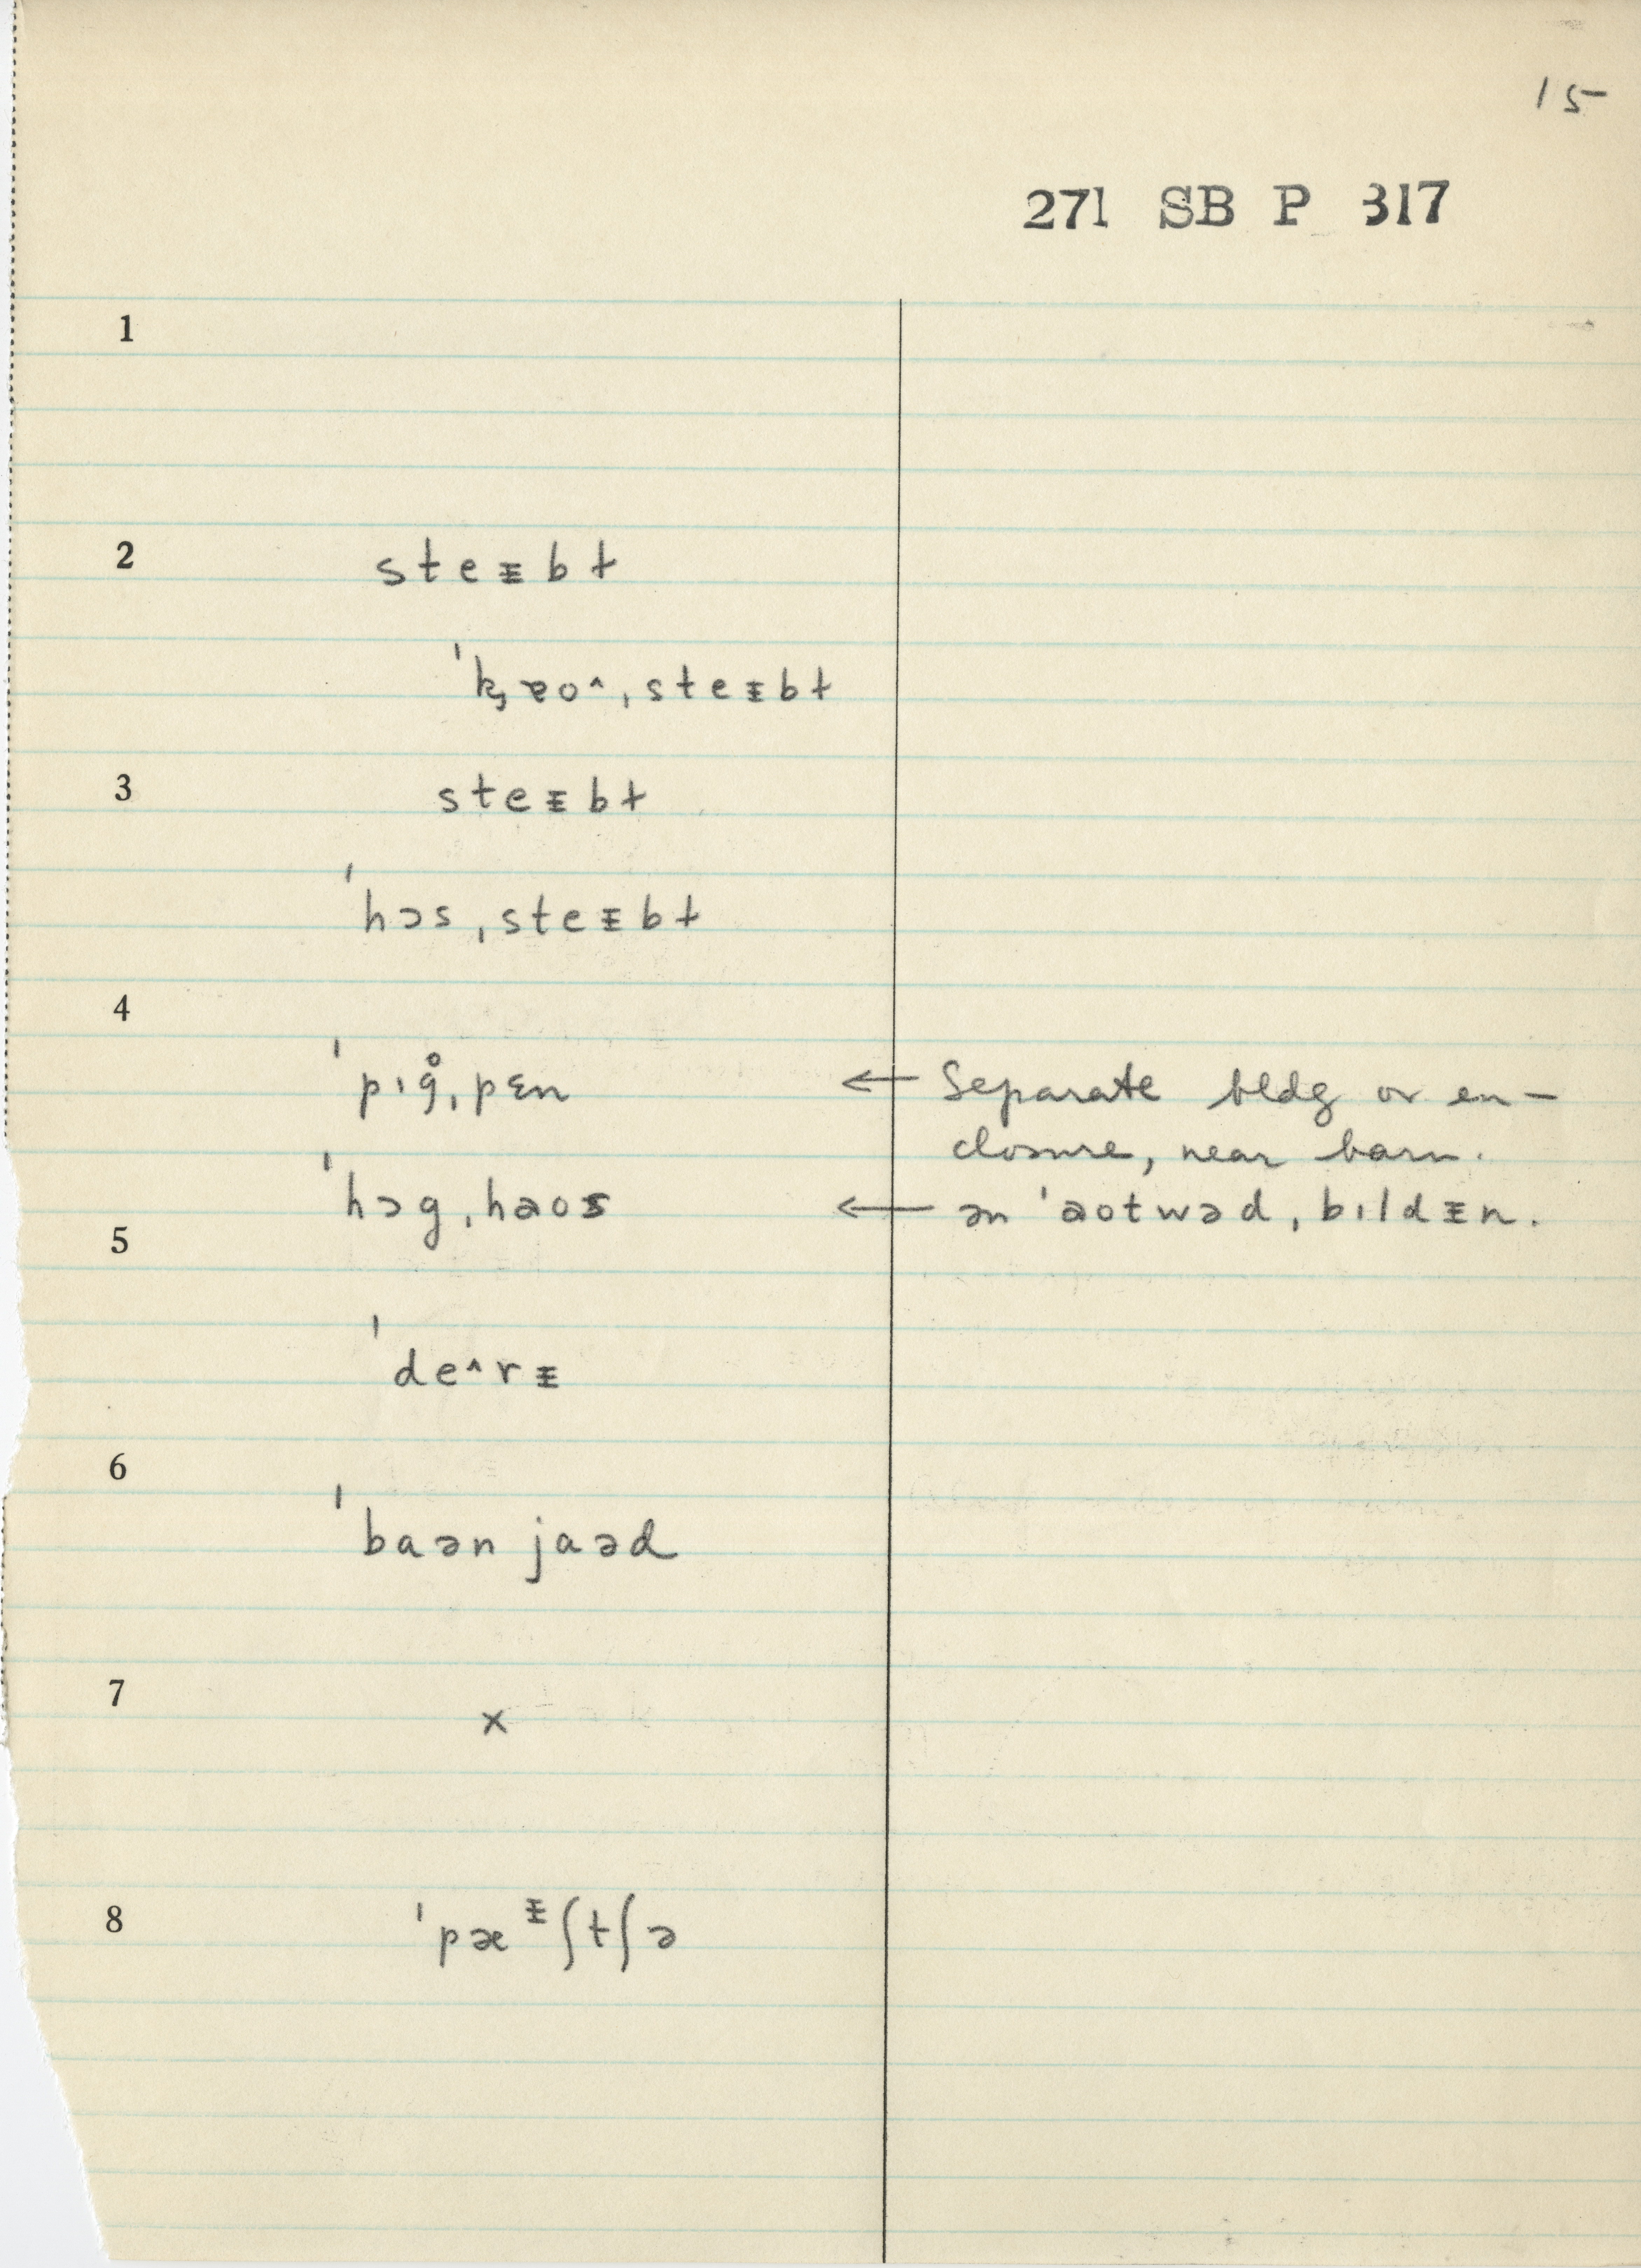 15
271 SB P 317
1
2
steᵻbɫ
ˈk̡ɐo^ˌsteᵻbɫ
3
steᵻbɫ
ˈhɔsˌsteᵻbɫ
4
ˈpɪg̊ˌpɛn ← Separate bldg or en-
closure, near barn.
ˈhɔgˌhaos ← ən ˈaotwədˌbɪldᵻn.
5
ˈde^rᵻ
6
ˈbaən jaəd
7
x
8
ˈpæᵻʃtʃə